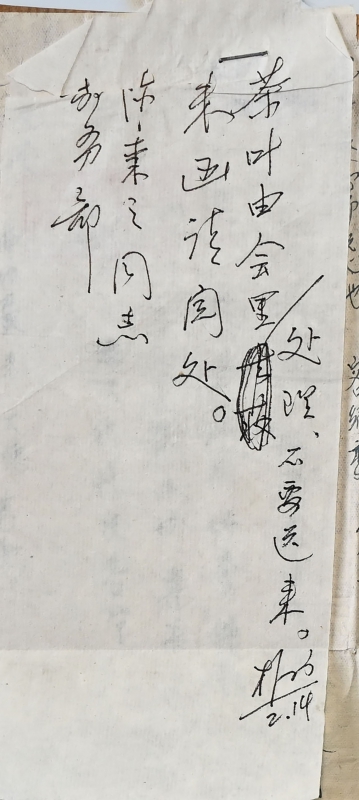 茶叶由会里处理、不要送来。
朴初
2.14
来函请阅处。
陈 之同志
教务部